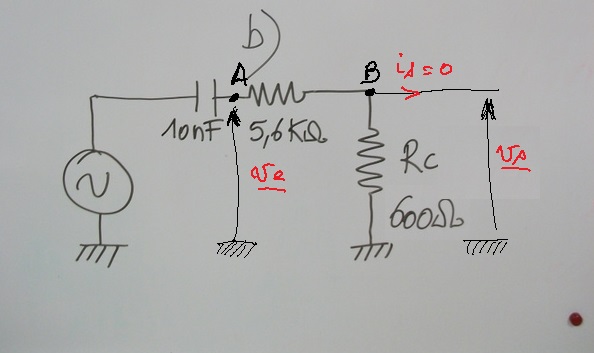 b
A
B
is=0
10nF
5,6KΩ
ve
Rc
600Ω
vs